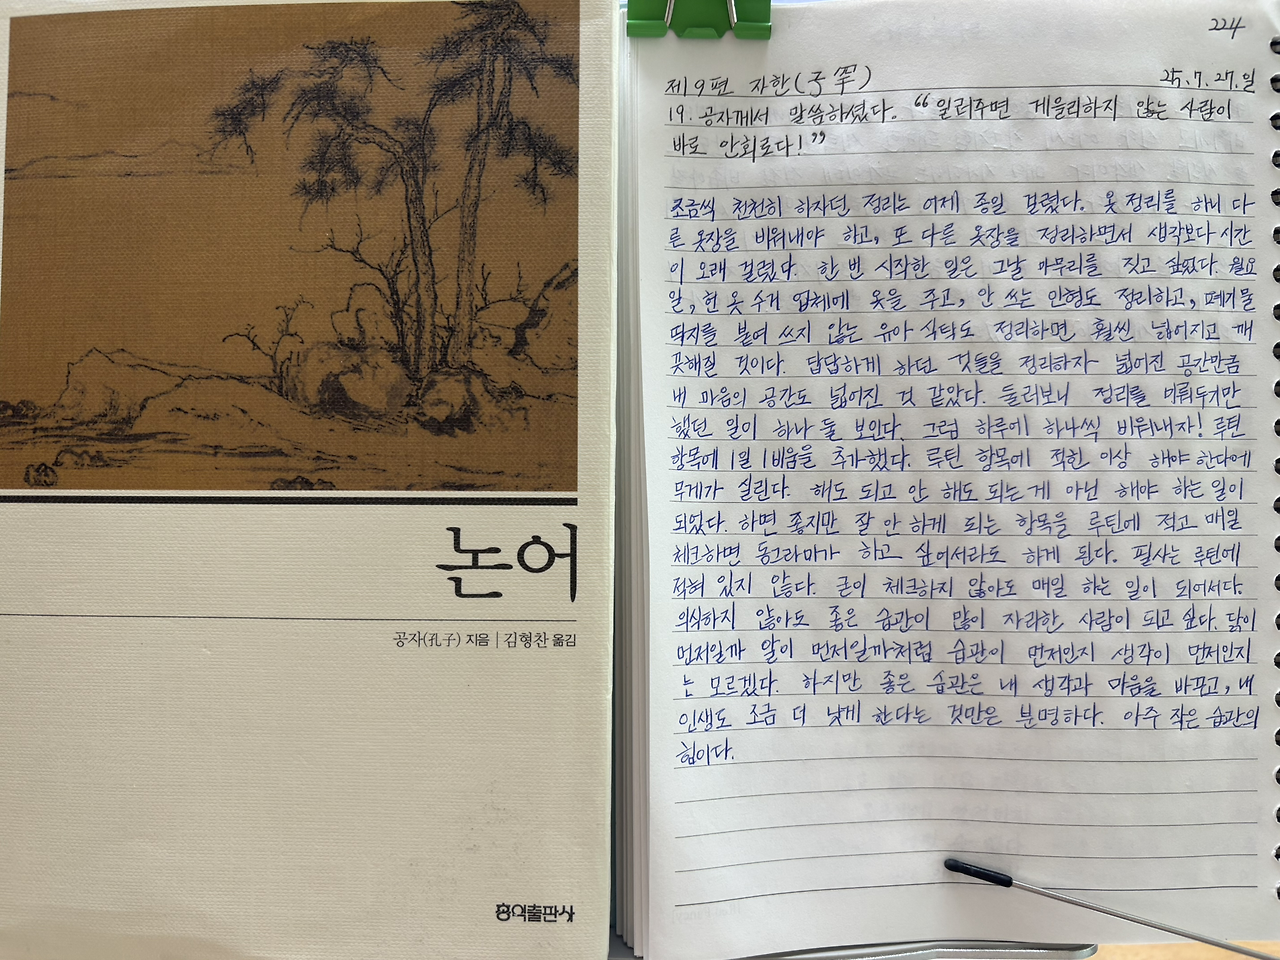 논어
공자(孔子) 지음 | 김형찬 옮김
홍익출판사
224
제9편 자한(子罕) 25.7.27.일
19. 공자께서 말씀하셨다. "일러주면 게을리하지 않는 사람이
바로 안회로다!"
조금씩 천천히 하자던 정리는 어제 종일 걸렸다. 옷 정리를 하니 다
른 옷장을 비워내야 하고, 또 다른 옷장을 정리하면서 생각보다 시간
이 오래 걸렸다. 한 번 시작한 일은 그날 마무리를 짓고 싶었다. 월요
일, 헌 옷 수거 업체에 옷을 주고, 안 쓰는 인형도 정리하고, 폐기물
딱지를 붙여 쓰지 않는 유아 식탁도 정리하면 훨씬 넓어지고 깨
끗해질 것이다. 답답하게 하던 것들을 정리하자 넓어진 공간만큼
내 마음의 공간도 넓어진 것 같았다. 둘러보니 정리를 미뤄두기만
했던 일이 하나 둘 보인다. 그럼 하루에 하나씩 비워내자! 루틴
항목에 1일 1비움을 추가했다. 루틴 항목에 적힌 이상 해야 한다에
무게가 실린다. 해도 되고 안 해도 되는 게 아닌 해야 하는 일이
되었다. 하면 좋지만 잘 안 하게 되는 항목을 루틴에 적고 매일
체크하면 동그라미가 하고 싶어서라도 하게 된다. 필사는 루틴에
적혀 있지 않다. 굳이 체크하지 않아도 매일 하는 일이 되어서다.
의식하지 않아도 좋은 습관이 많이 자리한 사람이 되고 싶다. 닭이
먼저일까 알이 먼저일까처럼 습관이 먼저인지 생각이 먼저인지
는 모르겠다. 하지만 좋은 습관은 내 생각과 마음을 바꾸고, 내
인생도 조금 더 낫게 한다는 것만은 분명하다. 아주 작은 습관의
힘이다.